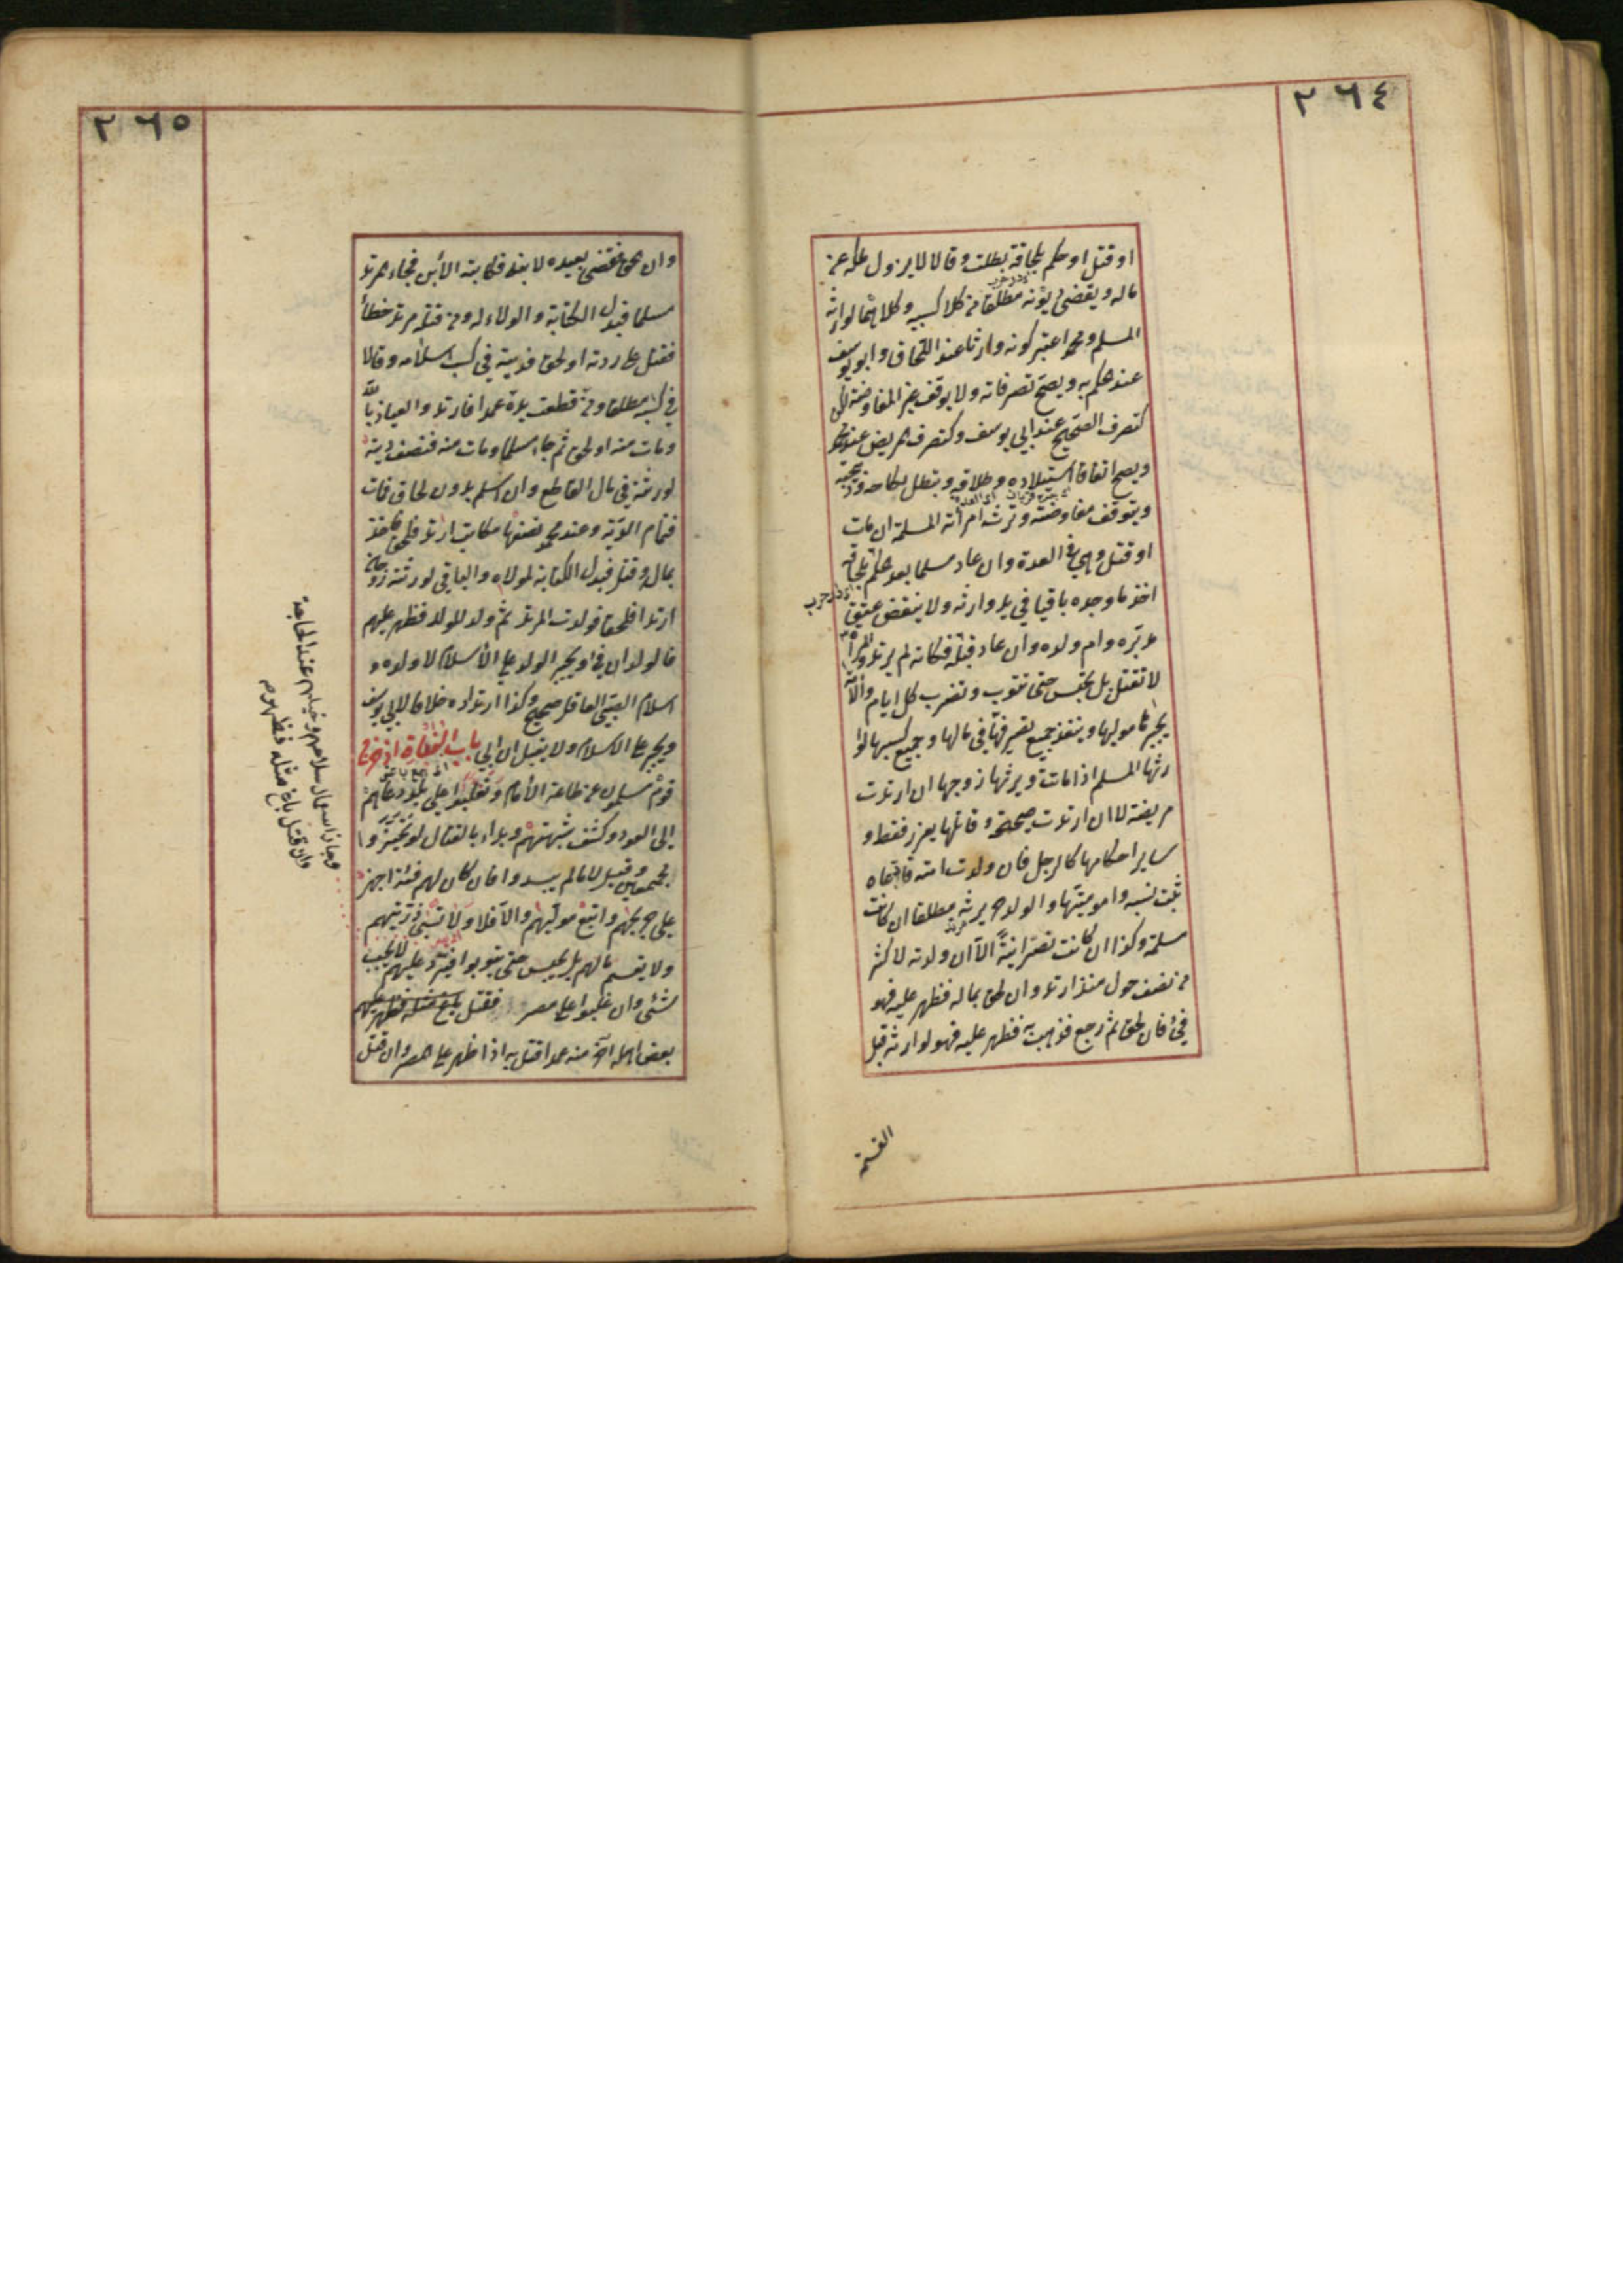 ٢٦٤
او قتل او حكم بلحاقه بطلت وقالا لا يزول ملكه عن
ماله ويقضى ديونه مطلقا من كلا كسبيه وكلاهما لوارثه
المسلم ومحمد اعتبر كونه وارثا عند اللحاق وابو يوسف
عند الحكم به ويصح تصرفاته ولا يوقف غير المفاوضة لكن
كتصرف الصحيح عند ابي يوسف وكتصرف المريض عند محمد
ويصح اتفاقا استيلاده وطلاقه ويبطل نكاحه وذبيحته
ويتوقف مفاوضته وترثه امرأته المسلمة ان مات
او قتل وهي في العدة وان عاد مسلما بعد الحكم بلحاقه
اخذ ما وجده باقيا في يد وارثه ولا ينقض عتق
مدبره وام ولده وان عاد قبله فكانه لم يرتد والمرأة
لا تقتل بل تحبس حتى تتوب وتضرب كل ايام والامة
يجبرها موليها وينفذ جميع تصرفها في مالها وجميع كسبها لوا
رثها المسلم اذا ماتت ويرثها زوجها ان ارتدت
مريضة لا ان ارتدت صحيحة وقاتلها يعزر فقط و
ساير احكامها كالرجل فان ولدت امته فادعاه
ثبت نسبه واموميتها والولد حر يرثه مطلقا ان كانت
مسلمة وكذا ان كانت نصرانية الا ان ولدته لاكثر
من نصف حول منذ ارتد وان لحق بماله فظهر عليه فهو
فيء فان لحق ثم رجع فذهب به فظهر عليه فهو لوارثه قبل
القسمة
٢٦٥
وان لحق فقضى بعبده لابنه فكاتبه الابن فجاء المرتد
مسلما فبدل الكتابة والولاء له ومن قتله مرتد خطأ
فقتل على ردته او لحق فديته في كسب اسلامه وقالا
في كسبه مطلقا ومن قطعت يده عمدا فارتد والعياذ بالله
ومات منه او لحق ثم جاء مسلما ومات منه فنصف ديته
لورثته في مال القاطع وان اسلم بدون لحاق فمات
فتمام الدية وعند محمد نصفها مكاتب ارتد فلحق فاخذ
بماله وقتل فبدل الكتابة لمولاه والباقي لورثته زوجان
ارتدا فلحقا فولدت المرتد ثم ولد للولد فظهر عليهم
فالولدان فيء ويجبر الولد على الاسلام لا ولده و
اسلام الصبي العاقل صحيح وكذا ارتداده خلافا لابي يوسف
ويجبر على الاسلام ولا يقتل ان ابى باب البغاة اذا خرج
قوم مسلمون عن طاعة الامام وتغلبوا على بلد دعاهم
الى العود وكشف شبهتهم وبدأ بالقتال لو تحيزوا
مجتمعين وقيل لا مالم يبدوا فان كان لهم فئة اجهز
على جريحهم واتبع موليهم والا فلا ولا تسبى ذريتهم
ولا يقسم مالهم بل يحبس حتى يتوبوا فيرد عليهم لا يجب
شئ وان غلبوا على مصر فقتل
بعض اهله آخر منه عمدا قتل به اذا ظهر على المصر وان قتل
وجاز استعمال سلاحهم وخيلهم عند الحاجة
وان قتل باغ مثله فظهر